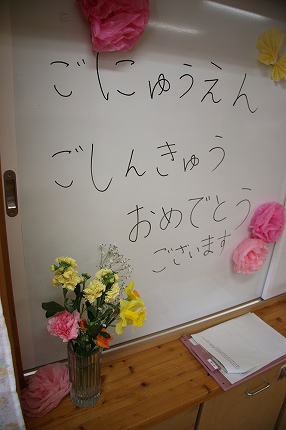 ごにゅうえん
ごしんきゅう
おめでとう
ございます